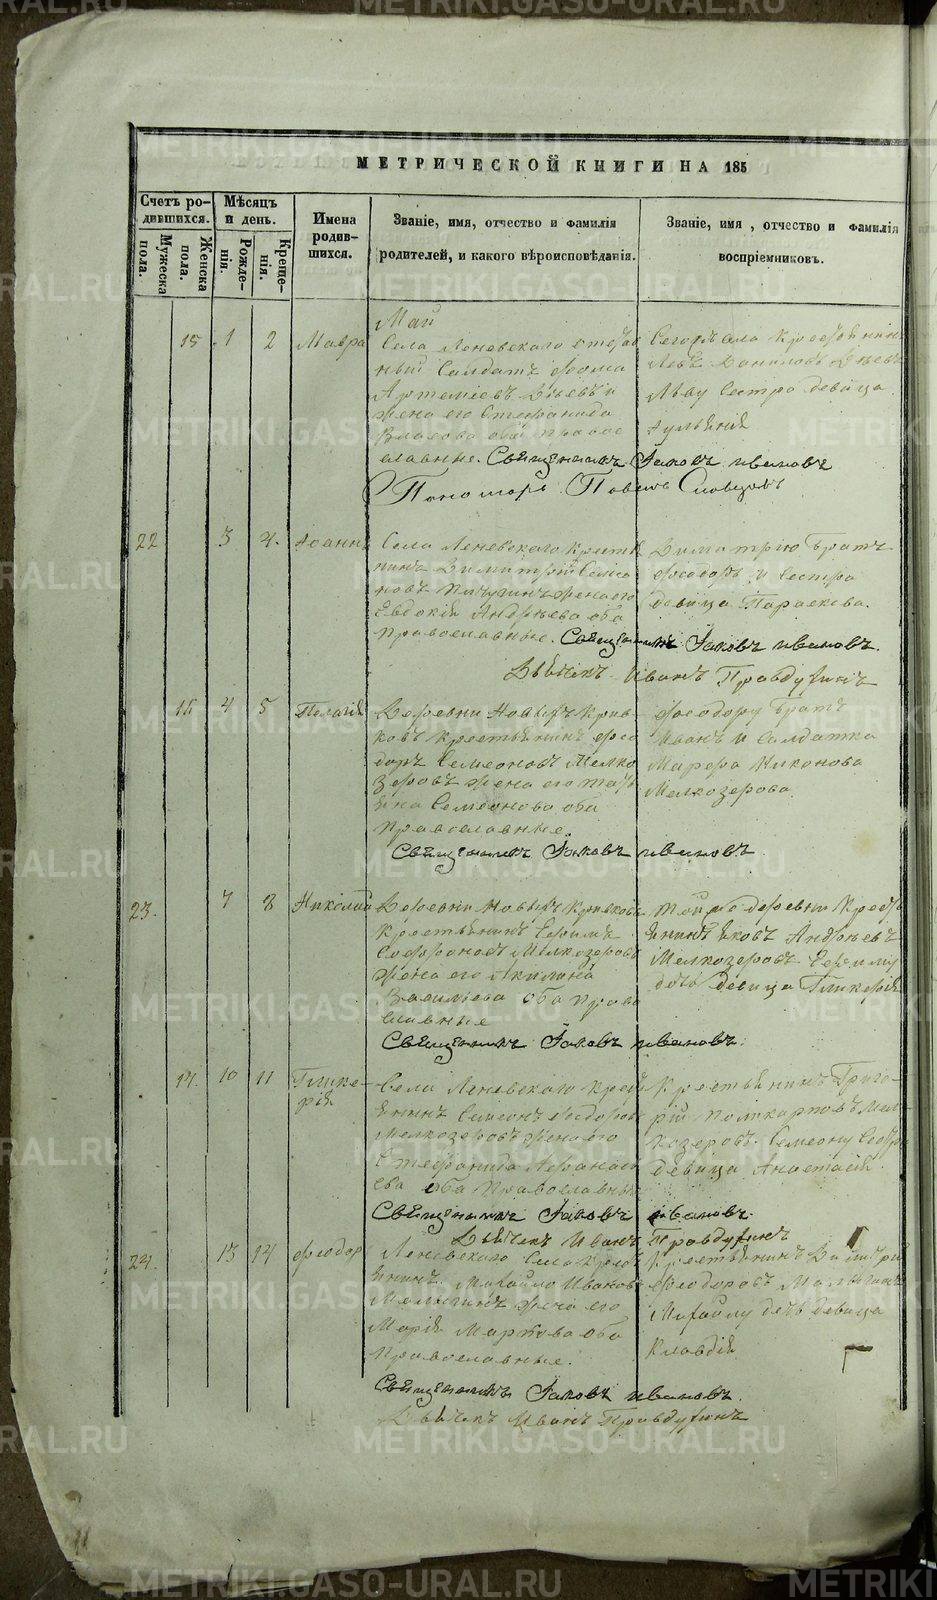 МЕТРИЧЕСКОЙ КНИГИ НА 185
Счетъ ро-
дившихся.
Мужеска
пола.
Женска
пола.
Мѣсяцъ
и день.
Рожде-
нія.
Креще-
нія.
Имена
родив-
шихся.
Званіе, имя, отчество и фамилія
родителей, и какого вѣроисповѣданія.
Званіе, имя, отчество и фамилія
воспріемниковъ.
Май
15 1 2 Мавра
Села Леневскаго
Солдатъ Фома
Артеміевъ
жена его Стефанида
Власова оба право
славные. Священникъ Іаковъ Ивановъ
Пономарь Павелъ Словцовъ
Сестра девица
22 3 4. Іоаннъ
Села Леневскаго Крестья
нинъ Димитрій Семео
новъ жена его
Евдокія Андрѣева оба
Православные. Священникъ Іаковъ Ивановъ.
Дьячекъ Иванъ Правдухинъ
Димитрію братъ
Феодоръ и Сестра
девица Параскева.
16 4 5 Пелагія
Деревни Новыхъ Крив-
ковъ Крестьянинъ Фео
доръ Семеоновъ Мелко
зеровъ жена его Тать
яна Семеонова оба
Православные.
Священникъ Іаковъ Ивановъ
Феодору братъ
Иванъ и Солдатка
Марфа Никонова
Мелкозерова.
23. 7 8 Николай
Деревни Новыхъ Кривковъ
Крестьянинъ Ефимъ
Софроновъ Мелкозеровъ
жена его Акилина
Василіева оба Право
славные
Священникъ Іаковъ Ивановъ.
Той же деревни Кресть
янинъ Яковъ Андрѣевъ
Мелкозеровъ Ефиму
дочь девица Гликерія
17. 10 11 Глике-
рія
Села Леневскаго Крест
янинъ Симеонъ Феодоровъ
Мелкозеровъ жена его
Стефанида Афанась
ева оба Православные
Священникъ Іаковъ Ивановъ.
Дьячекъ Иванъ Правдухинъ
Крестьянинъ Григо-
рій Поликарповъ Мел-
козеровъ. Симеону Сестра
девица Анастасія.
24. 13 14 Феодоръ
Леневскаго Села Крест
янинъ Михайло Ивановъ
Малыгинъ жена его
Марія Маркова оба
Православные.
Священникъ Іаковъ Ивановъ.
Дьячекъ Иванъ Правдухинъ
Крестьянинъ Димитрій
Феодоровъ Малыгинъ
Михайлу дочь девица
Клавдія
METRIKI.GASO-URAL.RU